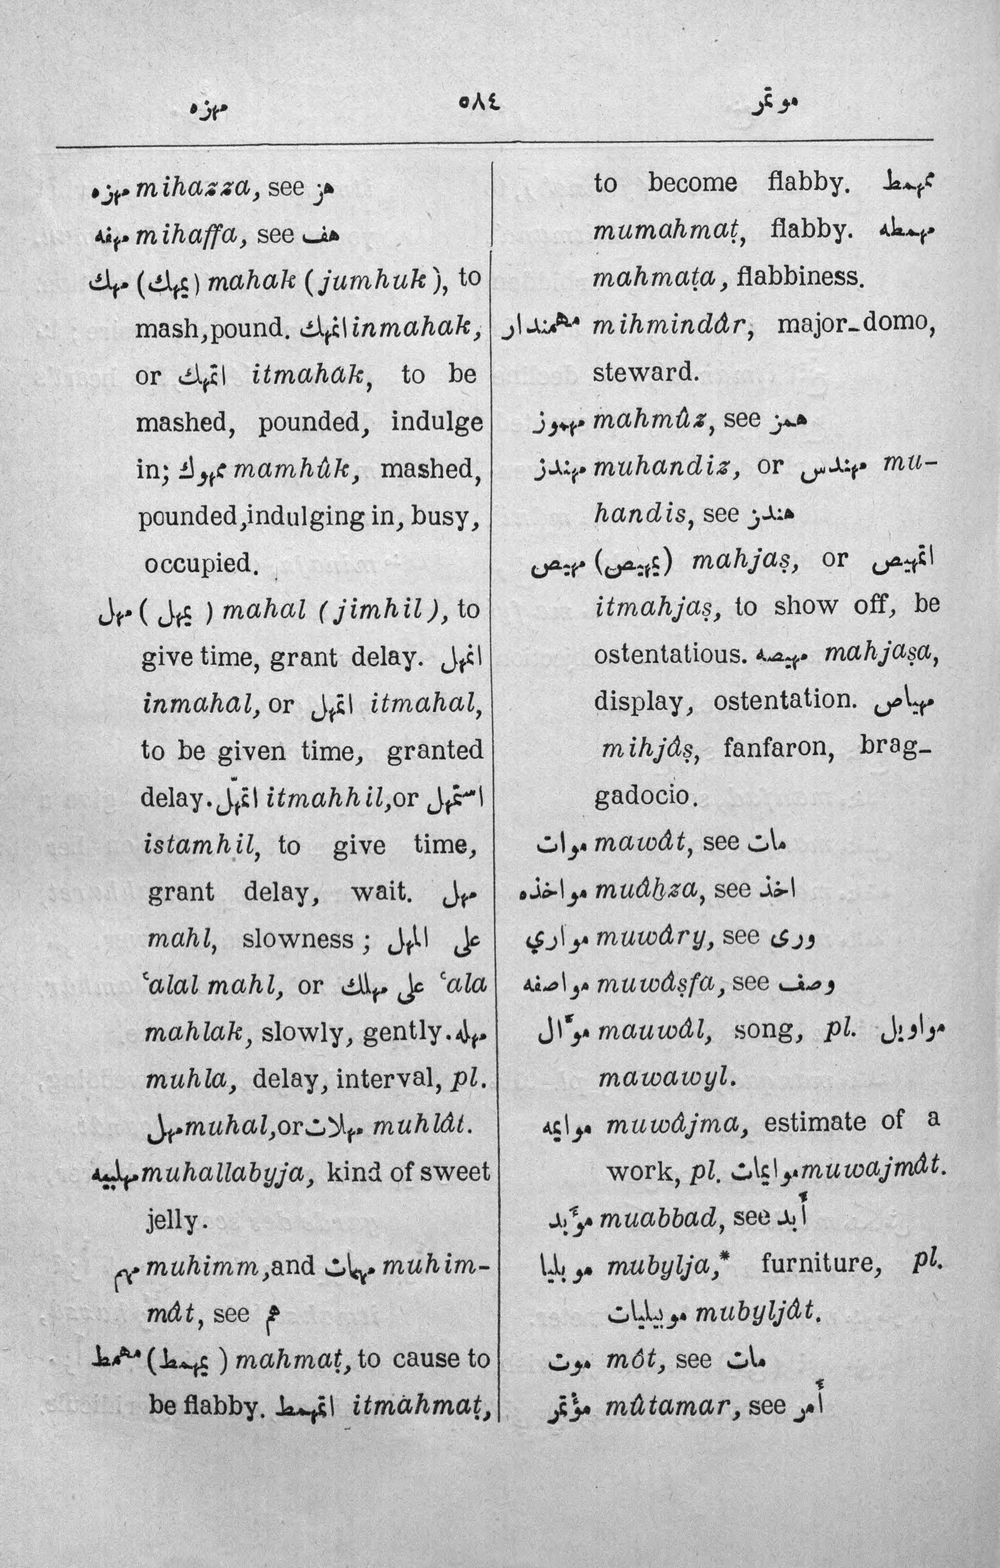 مهزه ٥٨٤ موتمر
مهزه mihazza, see هز
مهفه mihaffa, see هف
مهك (يمهك) mahak (jumhuk), to
mash, pound. اتمهك inmahak,
or اتمهك itmahak, to be
mashed, pounded, indulge
in; ممهوك mamhûk, mashed,
pounded, indulging in, busy,
occupied.
مهل (يمهل) mahal (jimhil), to
give time, grant delay. انمهل
inmahal, or اتمهل itmahal,
to be given time, granted
delay. اتمهّل itmahhil, or استمهل
istamhil, to give time,
grant delay, wait. مهل
mahl, slowness; على المهل
ʿalal mahl, or على مهلك ʿala
mahlak, slowly, gently. مهله
muhla, delay, interval, pl.
مهل muhal, or مهلات muhlât.
مهلبيه muhallabyja, kind of sweet
jelly.
مهم muhimm, and مهمات muhim-
mât, see هم
مهمط (يمهمط) mahmaṭ, to cause to
be flabby. اتمهمط itmahmaṭ,
to become flabby. ممهمط
mumahmaṭ, flabby. مهمطه
mahmaṭa, flabbiness.
مهمندار mihmindâr, major-domo,
steward.
مهموز mahmûz, see همز
مهندز muhandiz, or مهندس mu-
handis, see هندز
مهيص (يمهيص) mahjaṣ, or اتمهيص
itmahjaṣ, to show off, be
ostentatious. مهيصه mahjaṣa,
display, ostentation. مهياص
mihjâṣ, fanfaron, brag-
gadocio.
موات mawât, see مات
مواخذه muâḫza, see اخذ
مواري muwâry, see ورى
مواصفه muwâṣfa, see وصف
موّال mauwâl, song, pl. مواويل
mawawyl.
موايمه muwâjma, estimate of a
work, pl. موايمات muwajmât.
موّبد muabbad, see أبد
موبليا mubylja,* furniture, pl.
موبيليات mubyljât.
موت môt, see مات
مؤتمر mûtamar, see أمر